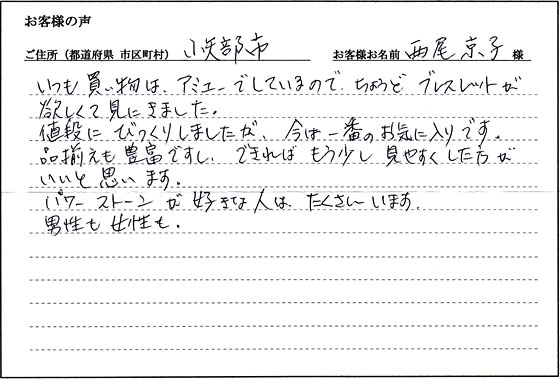 お客様の声
ご住所（都道府県 市区町村） 小矢部市 お客様お名前 西尾京子 様
いつも買い物は、アミューでしているので、ちょうど ブレスレットが
欲しくて見にきました。
値段に びっくりしましたが、今は一番のお気に入りです。
品揃えも豊富ですし、できれば もう少し 見やすくした方が
いいと思います。
パワーストーンが 好きな人は、たくさんいます。
男性も女性も。